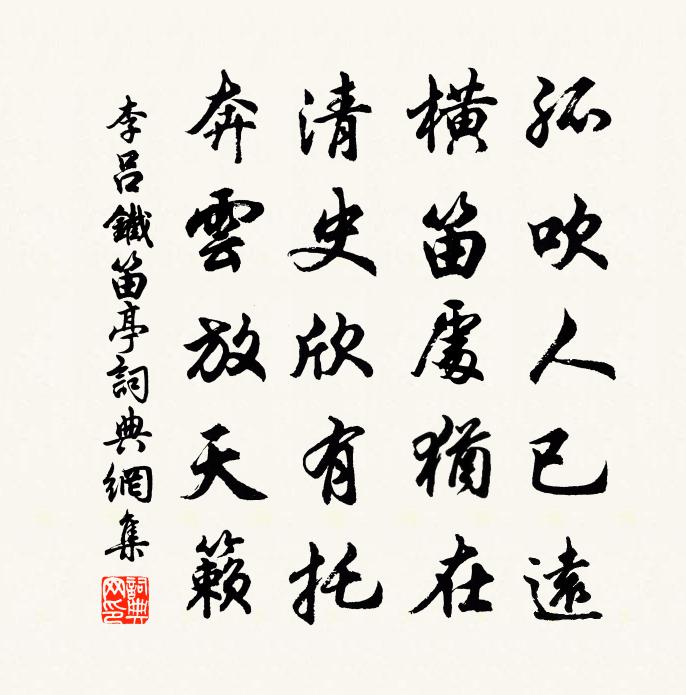 孤吹人已遠
橫笛處猶在
清史欣有托
奔雲放天籟
李呂鐵笛亭詞典網集
詞典網印